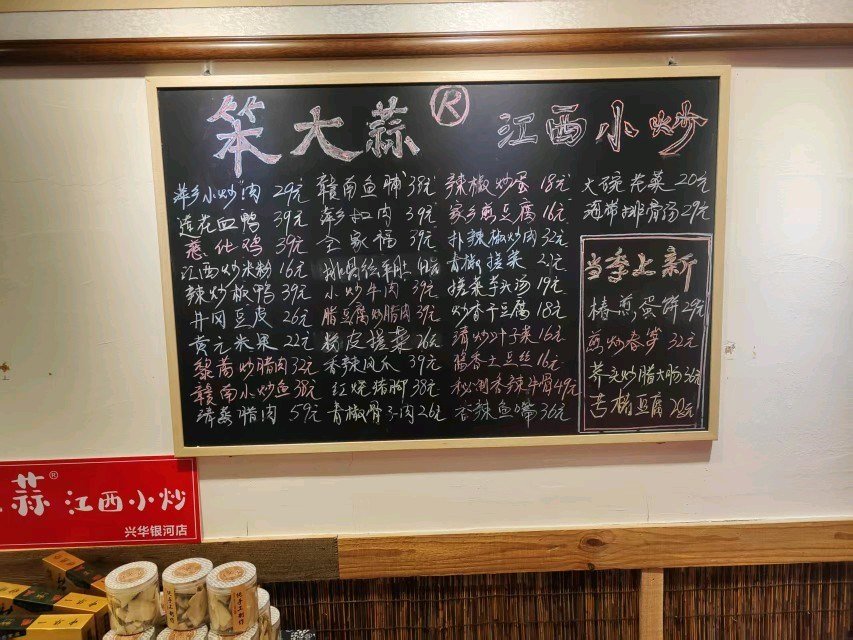 笨大蒜® 江西小炒
萍乡小炒肉 29元
莲花血鸭 39元
慈化鸡 39元
江西炒米粉 16元
辣炒板鸭 39元
井冈豆皮 26元
黄元米果 22元
藜蒿炒腊肉 32元
赣南小炒鱼 38元
清蒸腊肉 59元
赣南鱼脯 38元
萍乡扣肉 39元
全家福 39元
小炒牛肉 39元
腊豆腐炒腊肉 39元
香辣凤爪 39元
红烧猪脚 38元
青椒骨子肉 26元
辣椒炒蛋 18元
家乡煎豆腐 16元
扑辣椒炒肉 32元
青椒搓菜 22元
搓菜芋头汤 19元
炒香干豆腐 18元
清炒叶子菜 16元
酱香土豆丝 16元
秘制香辣牛骨 49元
香辣鱼嘴 36元
大碗花菜 20元
海带排骨汤 29元
当季上新
椿煎蛋饼 29元
煎炒春笋 32元
荞头炒腊大肠 36元
杏杨豆腐 28元
蒜® 江西小炒
兴华银河店